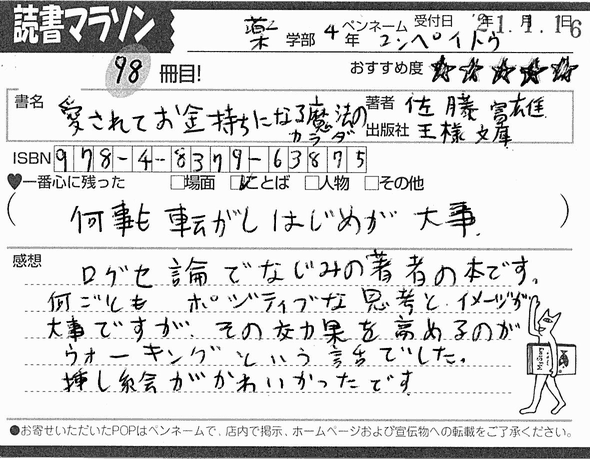 読書マラソン
薬学部 4年 ペンネーム コンペイトウ 受付日 '21年1月16日
98冊目! おすすめ度 ★★★★★
書名 愛されてお金持ちになる魔法のカラダ 著者 佐藤富雄
出版社 王様文庫
ISBN 978-4-8379-63875
♥一番心に残った □場面 ☑ことば □人物 □その他
(何事も転がしはじめが大事)
感想 口グセ論でなじみの著者の本です。
何ごとも ポジティブな思考と、イメージが
大事ですが、その効果を高めるのが
ウォーキングという話でした。
挿し絵がかわいかったです
●お寄せいただいたPOPはペンネームで、店内で掲示、ホームページおよび宣伝物への転載をご了承ください。